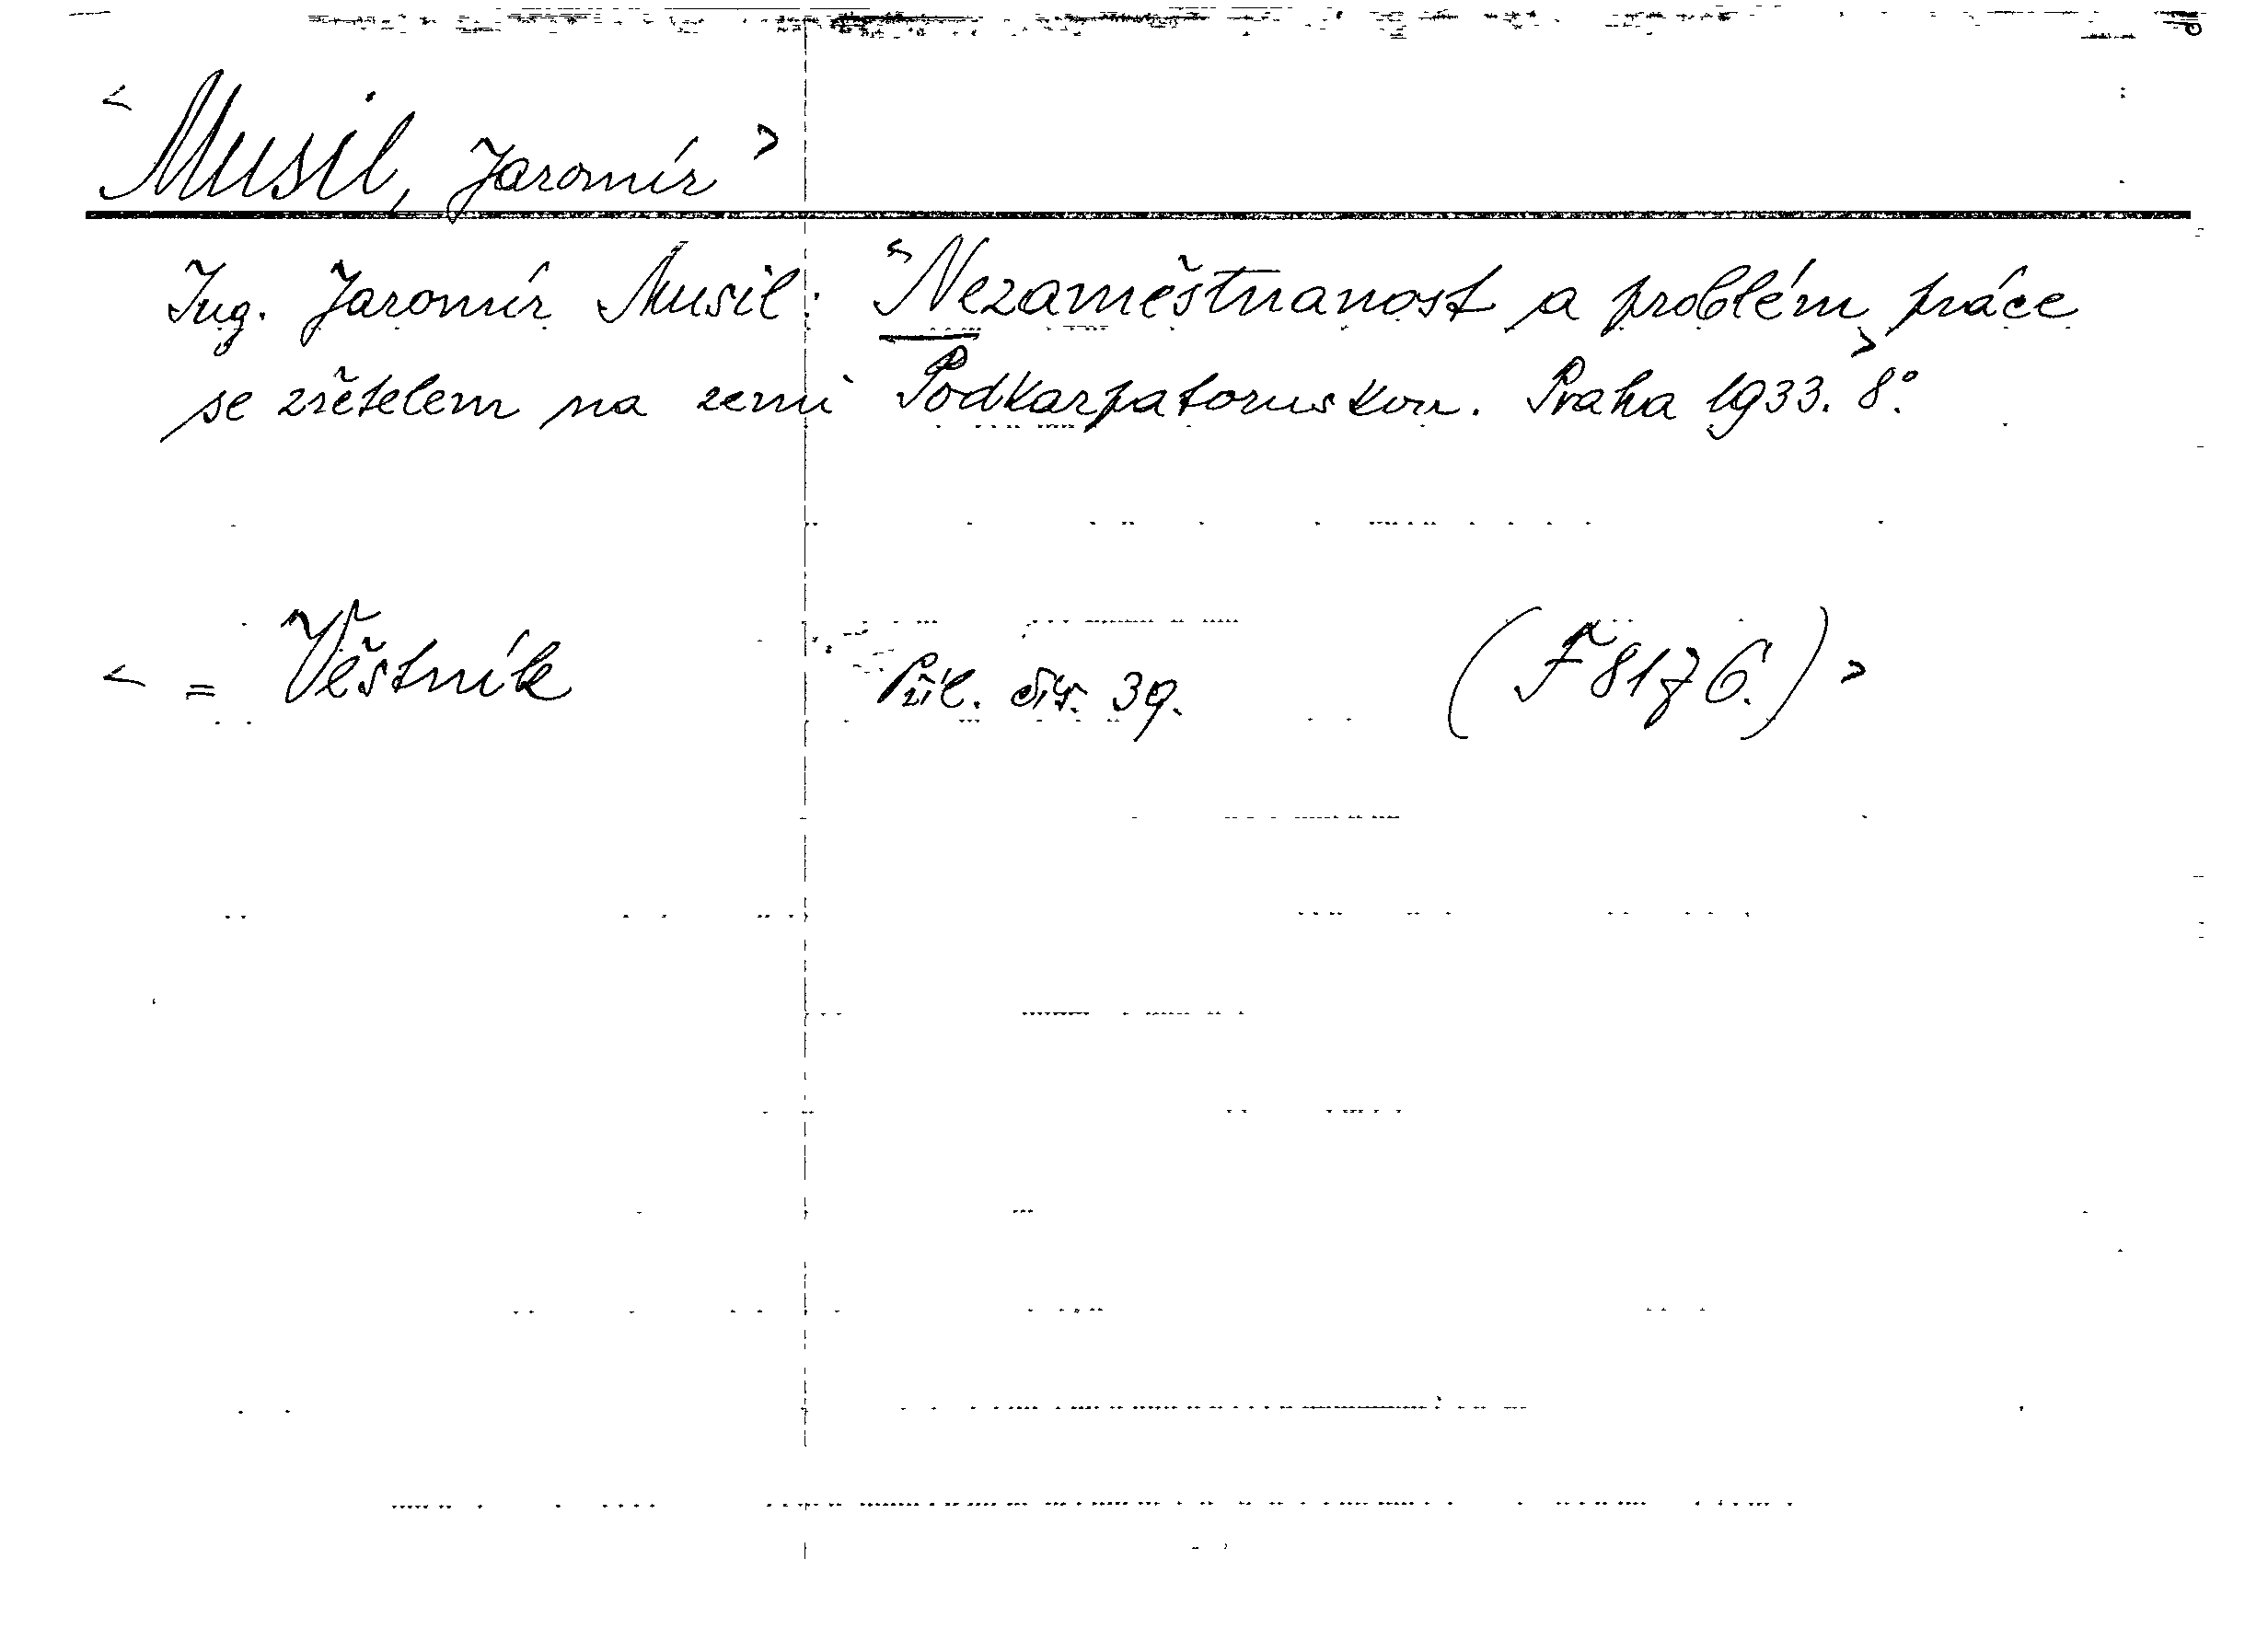 < Musil, Jaromír >
Ing. Jaromír Musil: < Nezaměstnanost a problém práce
se zřetelem na zemi Podkarpatoruskou. Praha 1933. > 8°.
< = Věstník Příl. čís. 39. (F 8176.) >